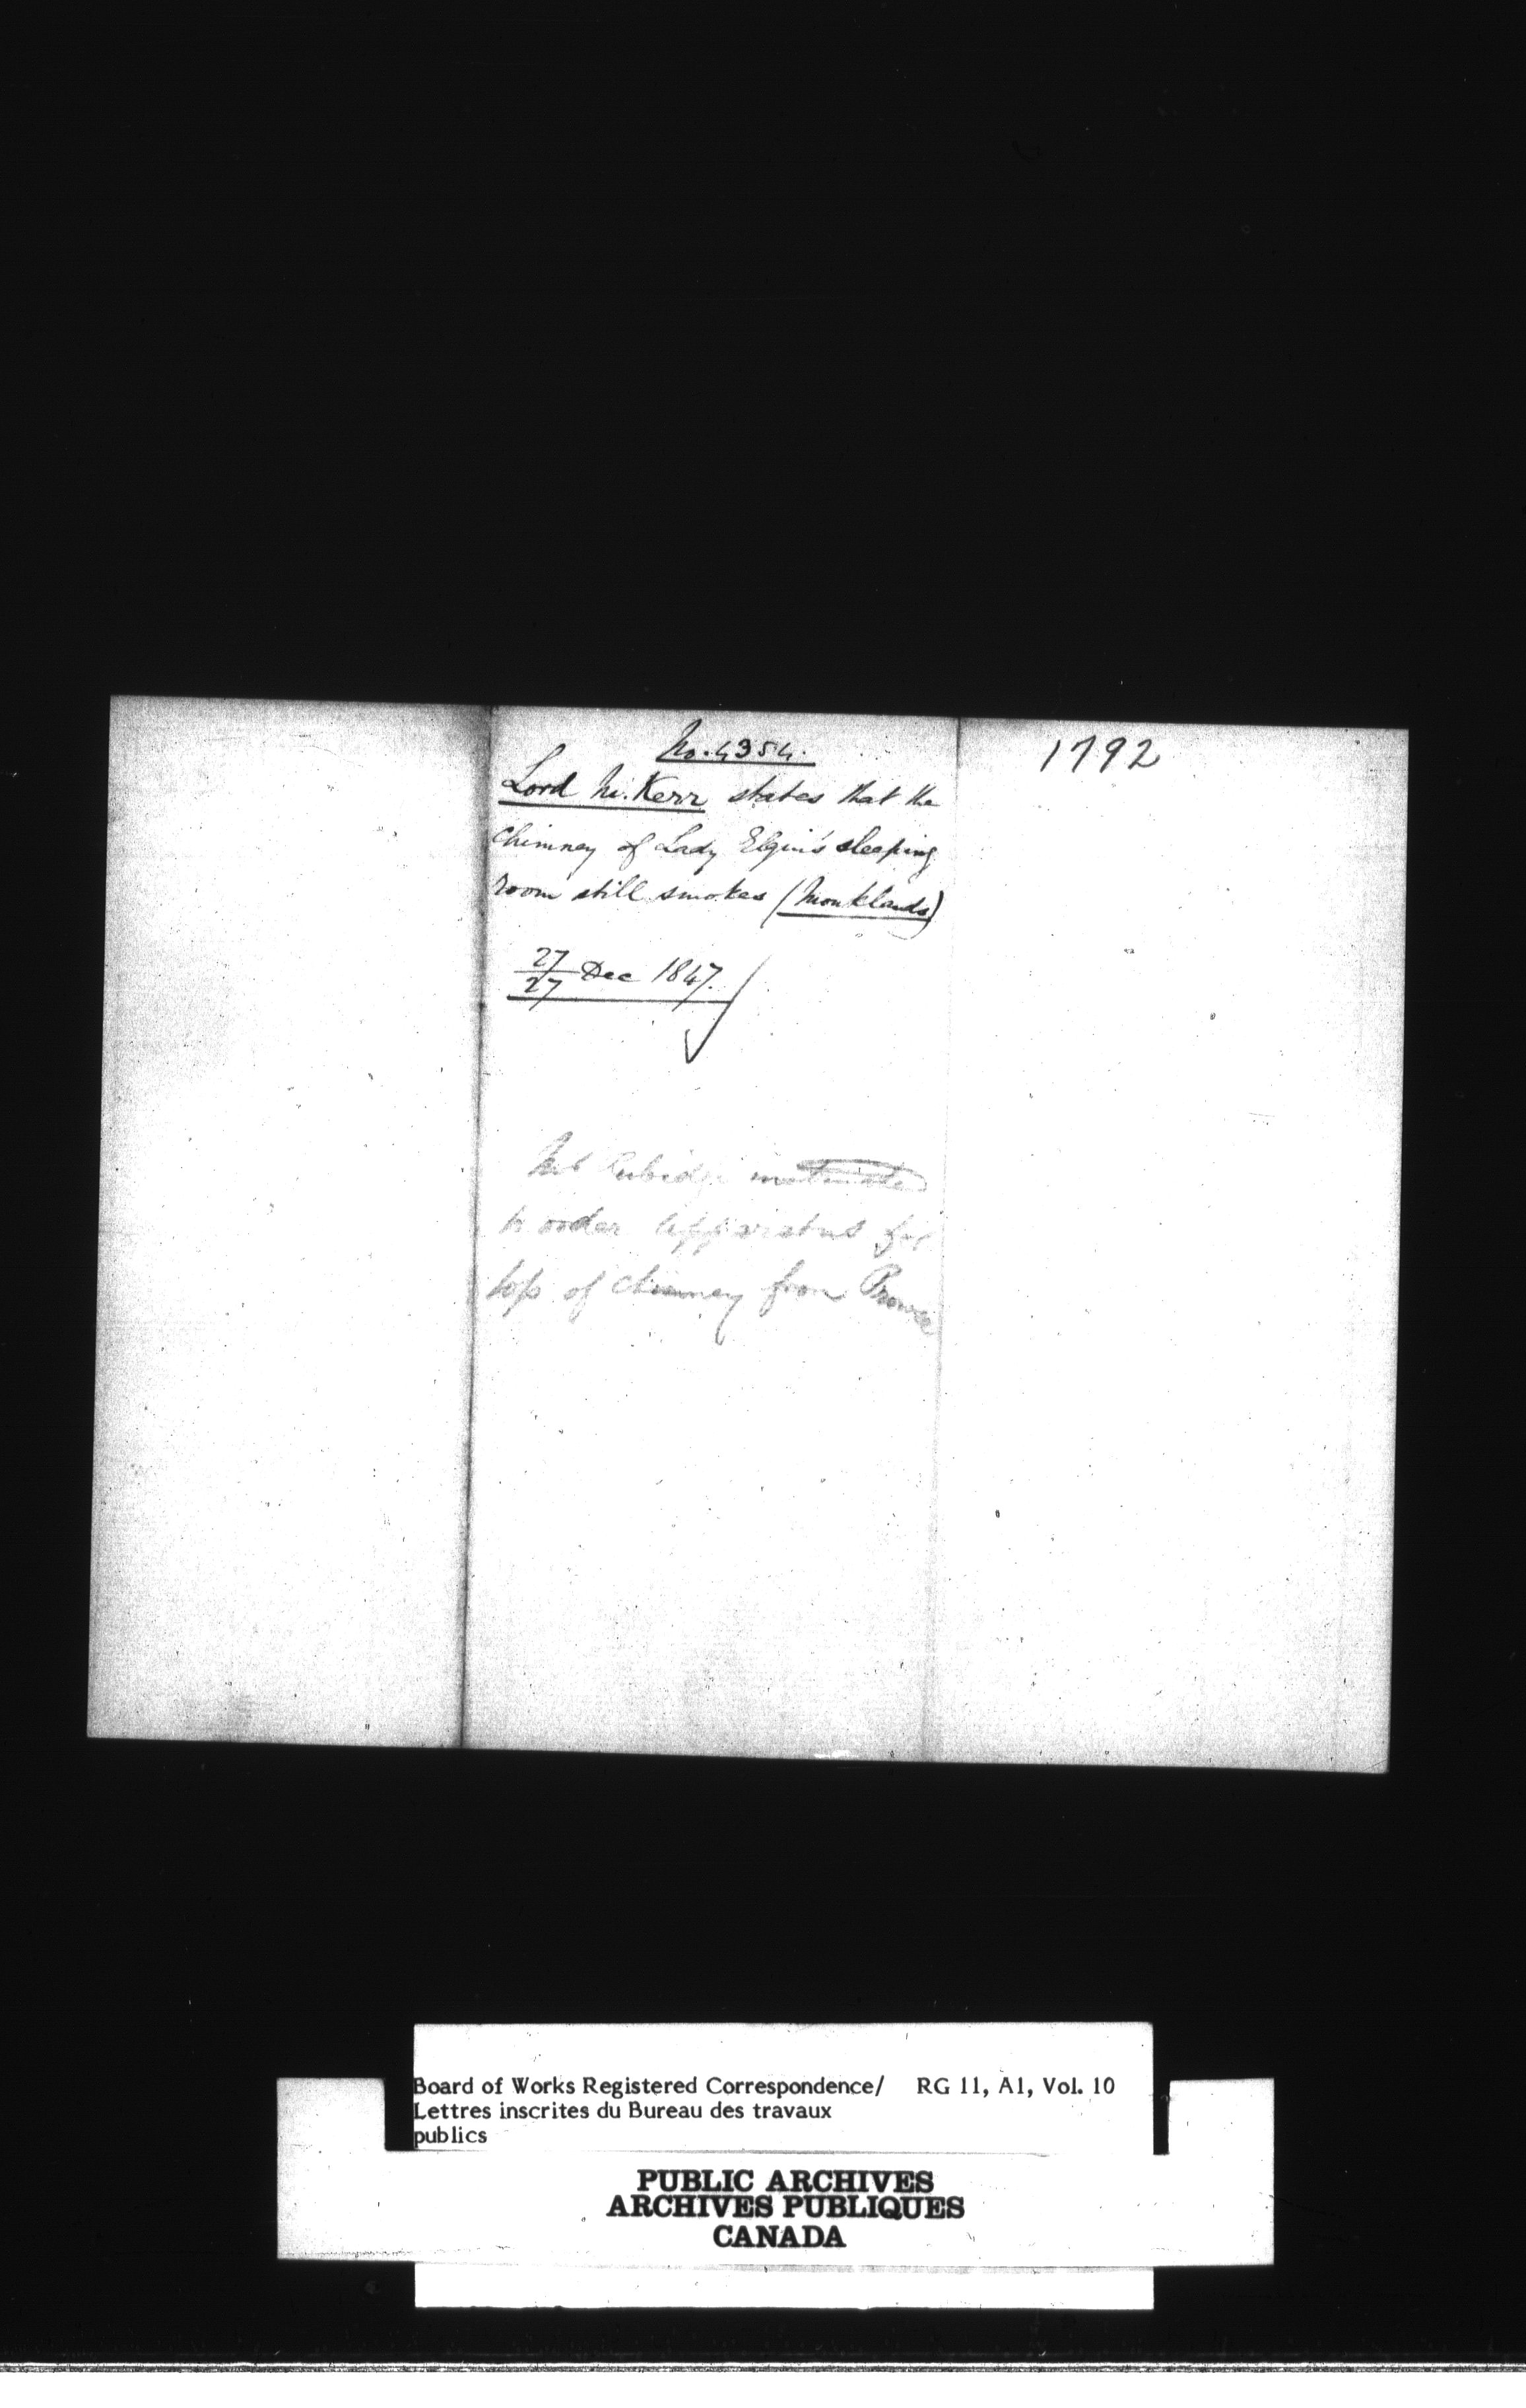 No. 4354.
Lord M. Kerr states that the
Chimney of Lady Elgin's sleeping
room still smokes (Monklands)
27/27 Dec 1847.
1792
Mr Rubidge
to order apparatus for
top of chimney from Prowse
Board of Works Registered Correspondence/ RG 11, A1, Vol. 10
Lettres inscrites du Bureau des travaux
publics
PUBLIC ARCHIVES
ARCHIVES PUBLIQUES
CANADA